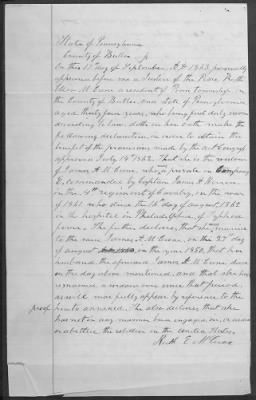 State of Pennsylvania
County of Butler
On this 17 day of September A.D. 1863, personally
appeared before me a Justice of the Peace Ruth
Ellen McCune a resident of Penn Township in
the County of Butler and State of Pennsylvania
aged thirty four years, who being first duly sworn
according to law, doth on her oath make the
following declaration in order to obtain the
benefit of the provisions made by the act Congress
approved July 14 1862. That she is the widow
of James A. McCune, who was a private in Company
commanded by Captain James
in the 4th regiment of Cavalry, in the war
of 1861 who died the 14 day of August 1862
in the hospital in Philadelphia of Typhoid
fever. She further declares, that she was married
to the said James A. McCune, on the 25 day
of August in the year 1852, that her
husband the aforesaid James A. McCune died
on the day above mentioned, and that she has
remained a widow ever since that period,
as will more fully appear by reference to the
proof hereto annexed. She also declares, that she
has not in any manner been engaged in, or aided
or abetted the rebellion in the United States.
Ruth E. McCune